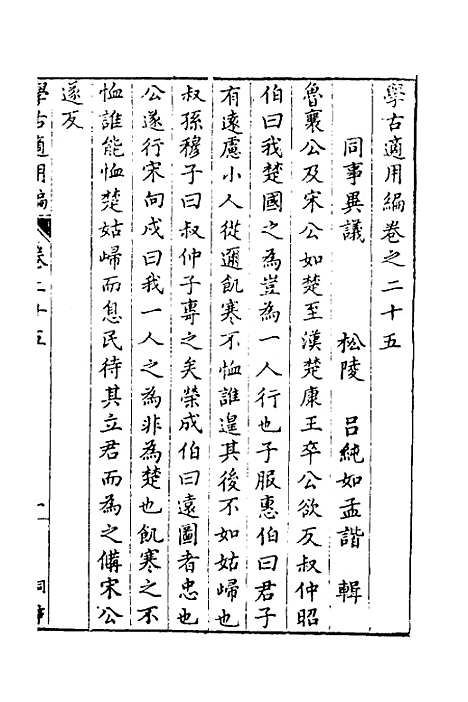 學古適用編卷之二十五
同事異議 松陵 呂純如孟諧 輯
魯襄公及宋公如楚至漢楚康王卒公欲反叔仲昭
伯曰我楚國之為豈為一人行也子服惠伯曰君子
有遠慮小人從邇飢寒不恤誰遑其後不如姑歸也
叔孫穆子曰叔仲子專之矣榮成伯曰遠圖者忠也
公遂行宋向戌曰我一人之為非為楚也飢寒之不
恤誰能恤楚姑歸而息民待其立君而為之備宋公
遂反
學古適用編 卷二十五 一 同事